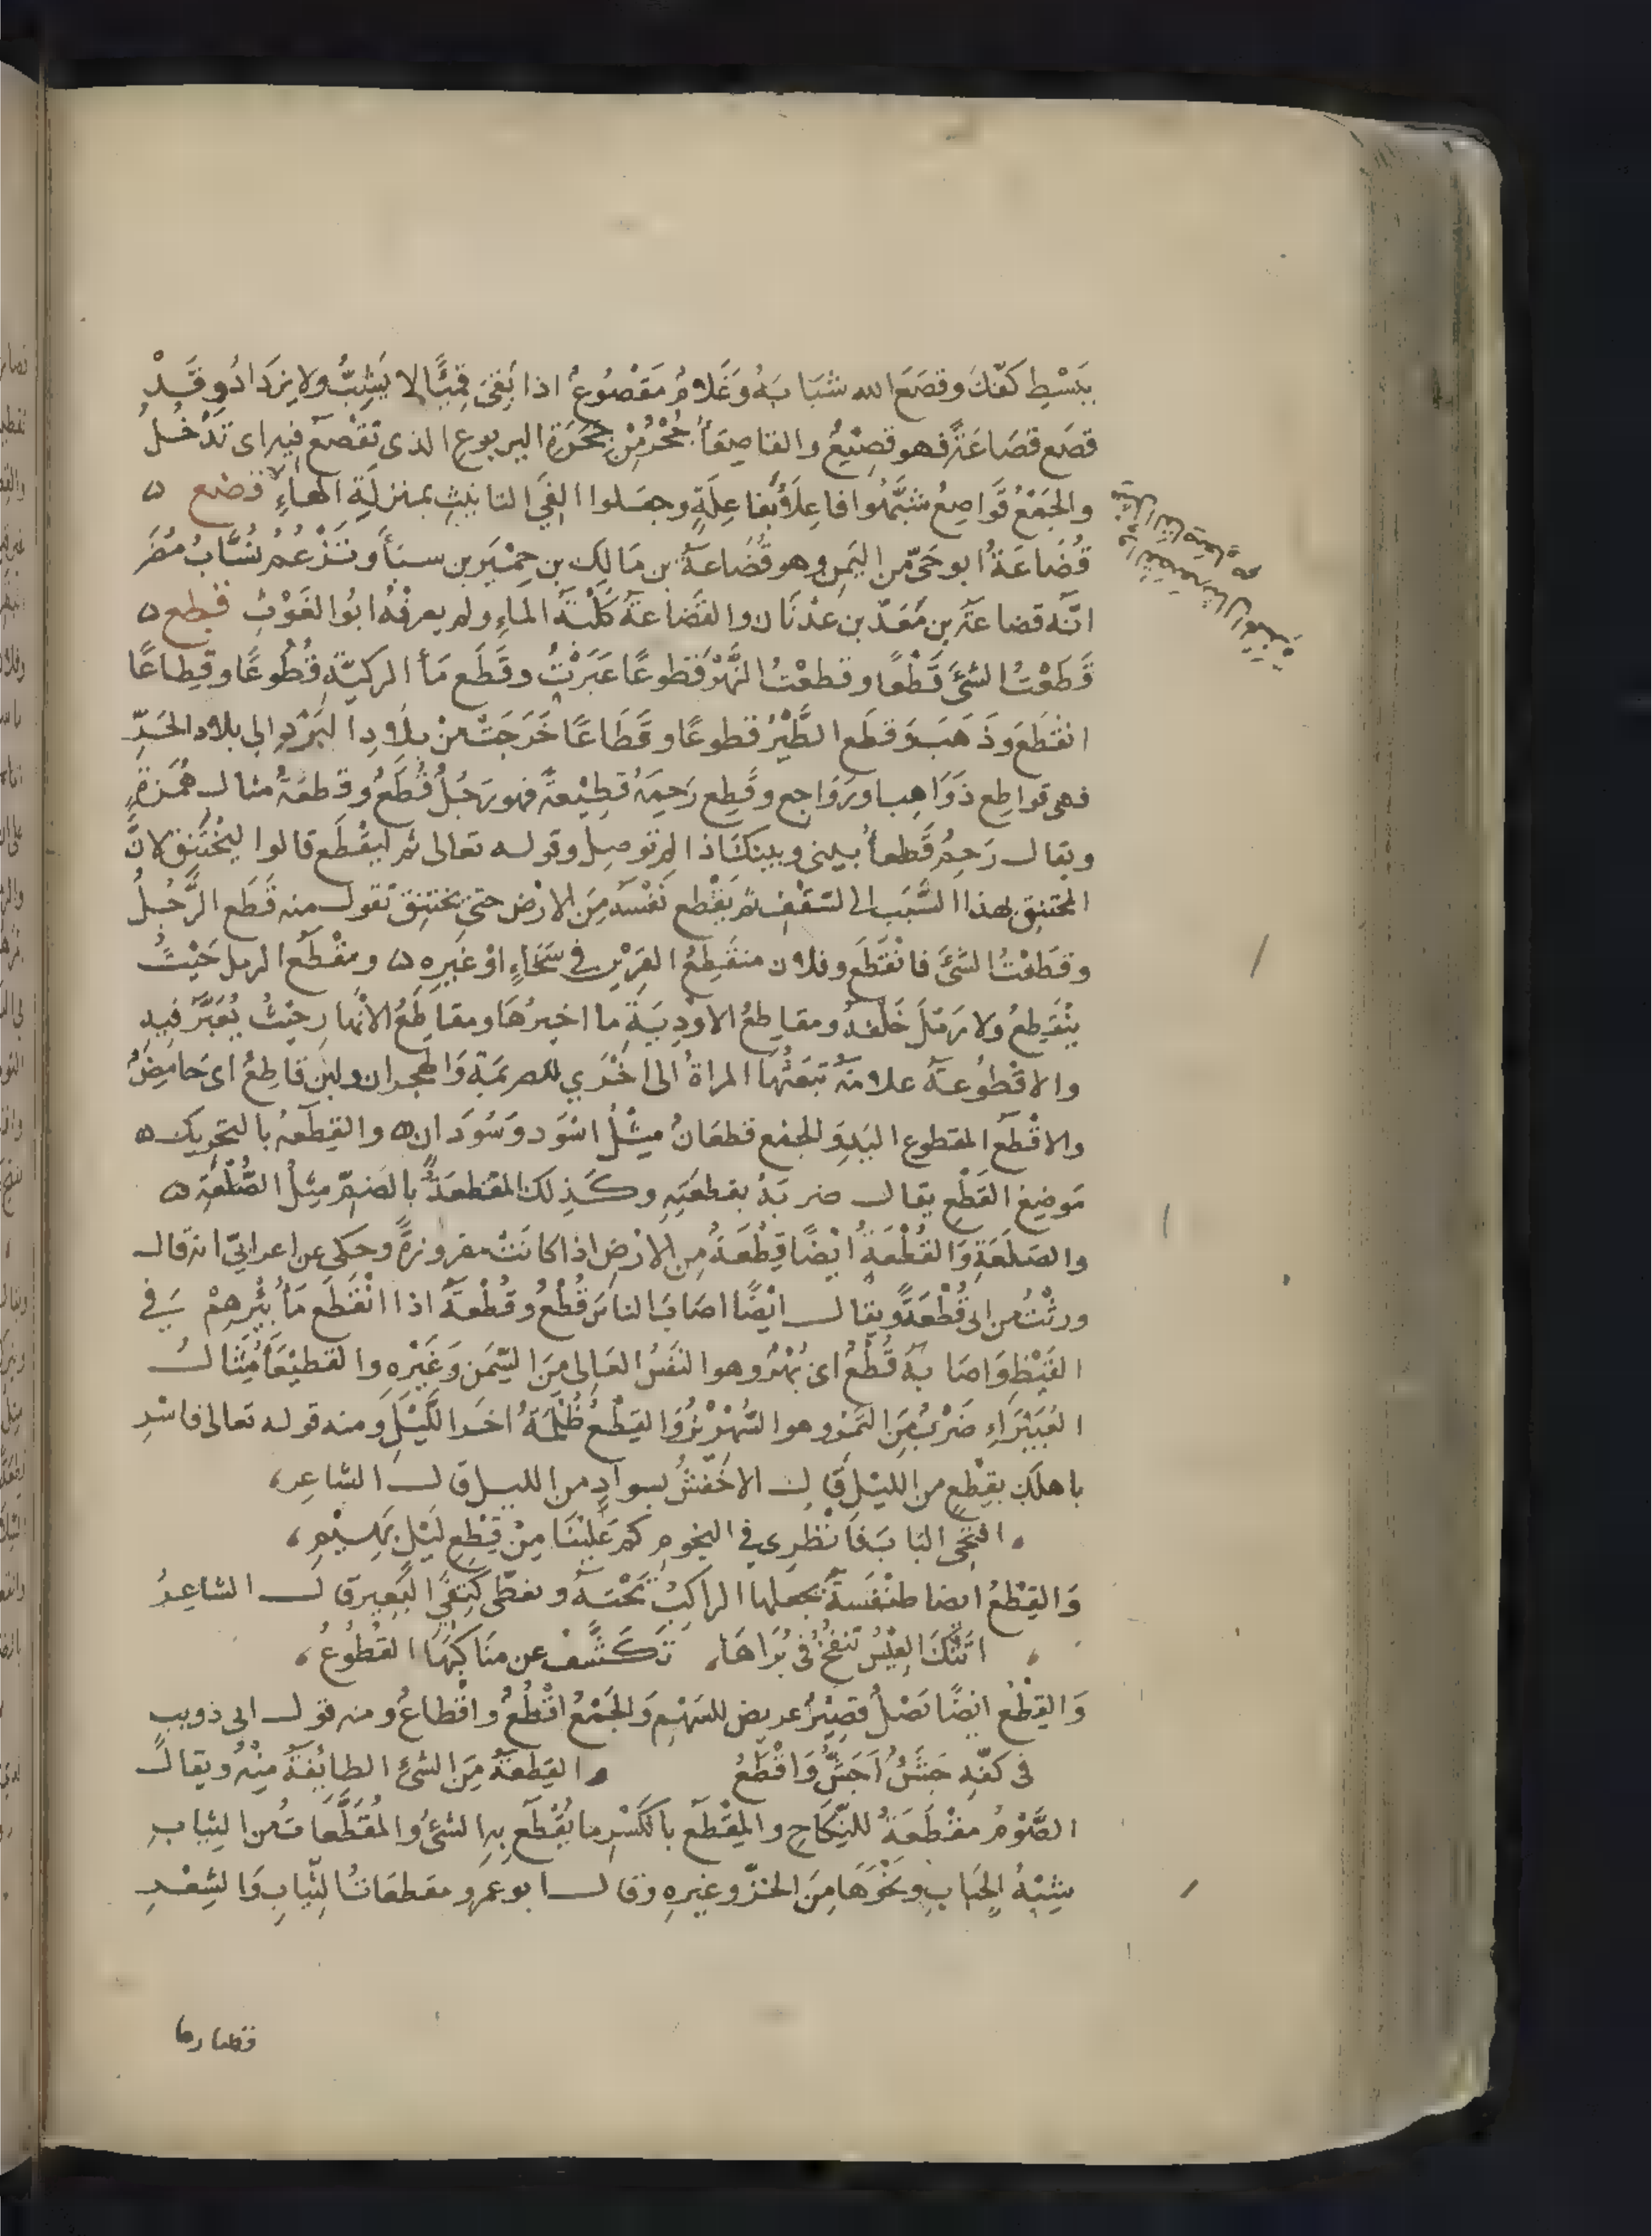 ببَسْطِ كَفِّكَ وقصَعَ الله شَبَابَهُ وَغُلامٌ مَقْصُوعٌ اذا بَقِىَ قَمِيًّا لا يَشِبُّ ولا يزدَادُ وقَدْ
قصُع قصَاعَةً فهو قصِيْعٌ والقاصِعَاُ جُحْرٌ مِنْ جِحَرَةِ اليربوعِ الذى تَقْصَعُ فيه اى تَدْخُلُ
والجَمْعُ قَوَاصِعُ شبَّهُوا فاعِلَاُ بفَاعِلَةٍ وجعَلوا الِفَىِ التانيثِ بمنزِلَةِ الهاءِ قضع
قُضَاعَةُ ابو حَىٍّ من اليَمن وهو قُضَاعَةُ بن مَالِك بن حِمْيَر بن سبَأ وتَزْعُمُ نُسَّابُ مُضَر
انَّه قضاعَةُ بن مَعَدّ بن عدْنَان والقُضاعَةُ كَلْبَةُ الماءِ ولم يعرفْهُ ابُوا الغَوْثِ قطع
قَطَعْتُ الشئَ قَطْعًا وقطعْتُ النَّهْرَ قُطوعًا عَبَرْتُ وقَطَع مَاُ الركيَّةِ قُطُوعًا وقِطاعًا
انقَطَعَ وذَهَبَ وَقطَع الطَّيْرُ قطوعًا وقَطَاعًا خَرَجَتْ مِنْ بلَادِ البَرْدِ الى بلاد الحَرِّ
فهى قواطِع ذَوَاهِب ورَوَاجِع وقَطِع رَحِمَهُ قطِيْعةً فهو رَجُلٌ قُطَعٌ وقُطعَةٌ مثال هُمَزَةٍ
ويقال رَحِمٌ قَطعاُ بينى وبينكَ اذا لم تُوصل وقوله تعالى ثم ليَقْطَع قالوا ليَخْتَنِق لانَّ
المختنِق يمدّ السَّبَب الى السَّقْفِ ثم يَقْطع نَفْسَه مِنَ الارْض حتى يختنِق تقول منه قَطَع الرَّجُلُ
وقطَعْتُ الشئَ فانْقَطَع وفلان منقطِعُ القرِيْنِ فى سَخَاءٍ اوْ غَيرِهِ ومُنْقَطَع الرمل حَيْثُ
ينْقطِعُ ولا رَمْلَ خَلْفَهُ ومقاطِعُ الاوْدِيَةِ مآخيرُهَا ومقَاطعُ الانْهارِ حيْثُ يُعْبَرُ فيه
والاقْطُوعةُ علامَةٌ تَبعَثُهَا المراةُ الى اخْرَى للصريمَة وَالهجران ولبن قاطِعٌ اى حامِضٌ
والاقْطَع المقطوع اليَدِ وَالجمْع قطعَانٌ مِثْلُ اسْوَد وَسُوْدَان والقِطَعَةُ بالتحريك
مَوضِعُ القَطْعِ يقال ضربَهُ بقطعَتِهِ وكَذِلك القُطعَةُ بالضمِّ مثِلُ الصُّلْعَةِ
والصَلَعَةِ وَالقُطْعَةُ ايْضًا قِطْعَةٌ مِن الارْضِ اذا كانَتْ مفروزةً وحكى عن اعرابيّ انه قال
ورِثْتُ من ابى قُطْعَةً ويقال ايْضًا اصَابَ الناسَ قُطْعٌ وقُطْعَةٌ اذا انْقَطَع مَاُ بِئْرِهِمْ فى
القَيْظِ وَاصَابَهُ قُطْعٌ اىْ بُهْرٌ وهو النَفَسُ العَالى مِنَ السِّمَنِ وَغَيْرِهِ والقُطيْعَاُ مِثَال
الغُبَيْرَاءِ ضَرْبٌ مِنَ التَمْرِ وهو الشِّهْرِيْزُ وَالقِطْعُ ظُلْمَةُ آخرِ اللَّيْلِ ومنه قوله تعالى فاسْرِ
باهلك بقِطْعٍ من الليْل قال الاخْفشُ بسوادٍ من الليل قال الشاعِر
افتحى البابَ فانْظُرِى فى النجومِ كم عَلَيْنَا مِنْ قِطْعِ لَيْلٍ بَهِيْمِ
وَالقِطْعُ ايضا طنْفَسَةٌ يجعلها الراكِبُ تَحْتهُ وتغطّى كَتِفَىِ البَعِير قال الشاعِرُ
اتتْكَ العِيْسُ تنفخُ فى بُرَاهَا، تكَشَّفُ عن مَنَاكِبهَا القُطُوعُ
وَالقِطْعُ ايْضًا نَصْلٌ قَصِيْرٌ عريض السَهْمِ وَالجَمْعُ اقْطُعٌ واقْطاعٌ ومنه قول ابى ذويب
فى كفّهِ جَشْؤٌ اجَشُّ وَاقْطُعُ والقِطعَةُ مِنَ الشئِ الطائفَةُ مِنْهُ ويقال
الصَّوْمُ مقْطَعَةٌ للنِّكَاحِ والمِقْطَع بالكَسْرِ ما يُقْطَع بِهِ الشئُ وَالمُقَطَّعَاتُ من الثياب
شِبْهُ الجِبَابِ ونَحْوهَا مِنَ الخزّ وغيرِهِ وقال ابو عمرو مقطعَاتُ الثِيَابِ وَالشِعْرِ
قصارها